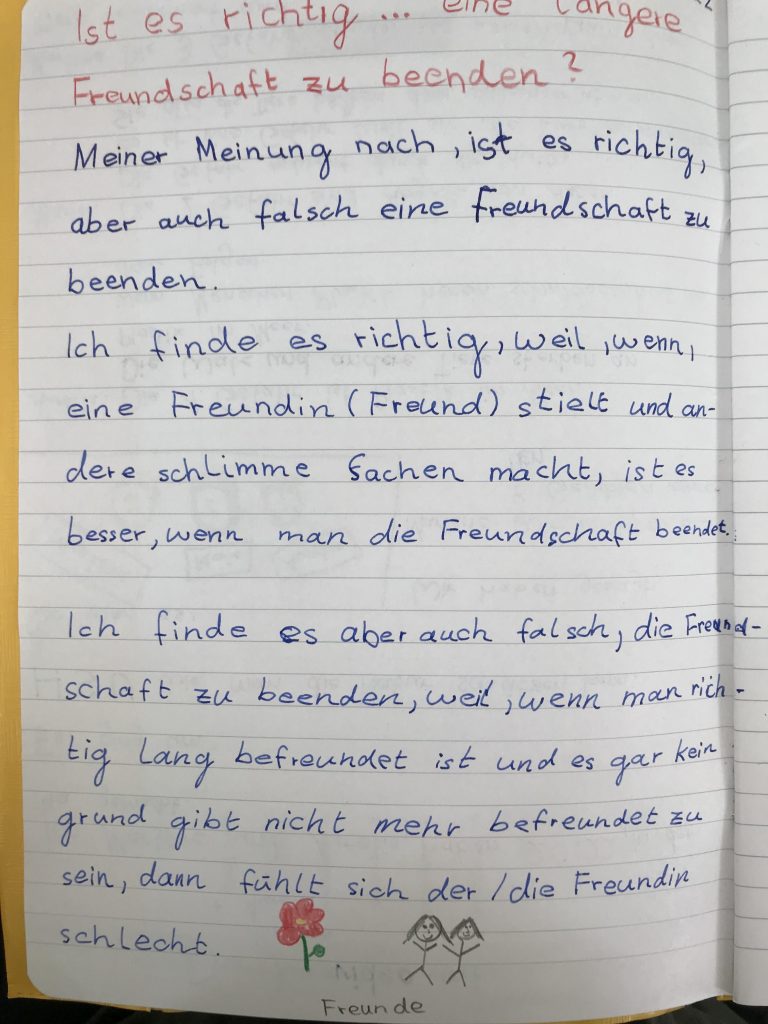 Ist es richtig ... eine längere
Freundschaft zu beenden?
Meiner Meinung nach, ist es richtig,
aber auch falsch eine freundschaft zu
beenden.
Ich finde es richtig, weil, wenn,
eine Freundin (Freund) stielt und an-
dere schlimme Sachen macht, ist es
besser, wenn man die Freundschaft beendet.
Ich finde es aber auch falsch, die Freund-
schaft zu beenden, weil, wenn man rich-
tig lang befreundet ist und es gar kein
grund gibt nicht mehr befreundet zu
sein, dann fühlt sich der / die Freundin
schlecht.
Freunde